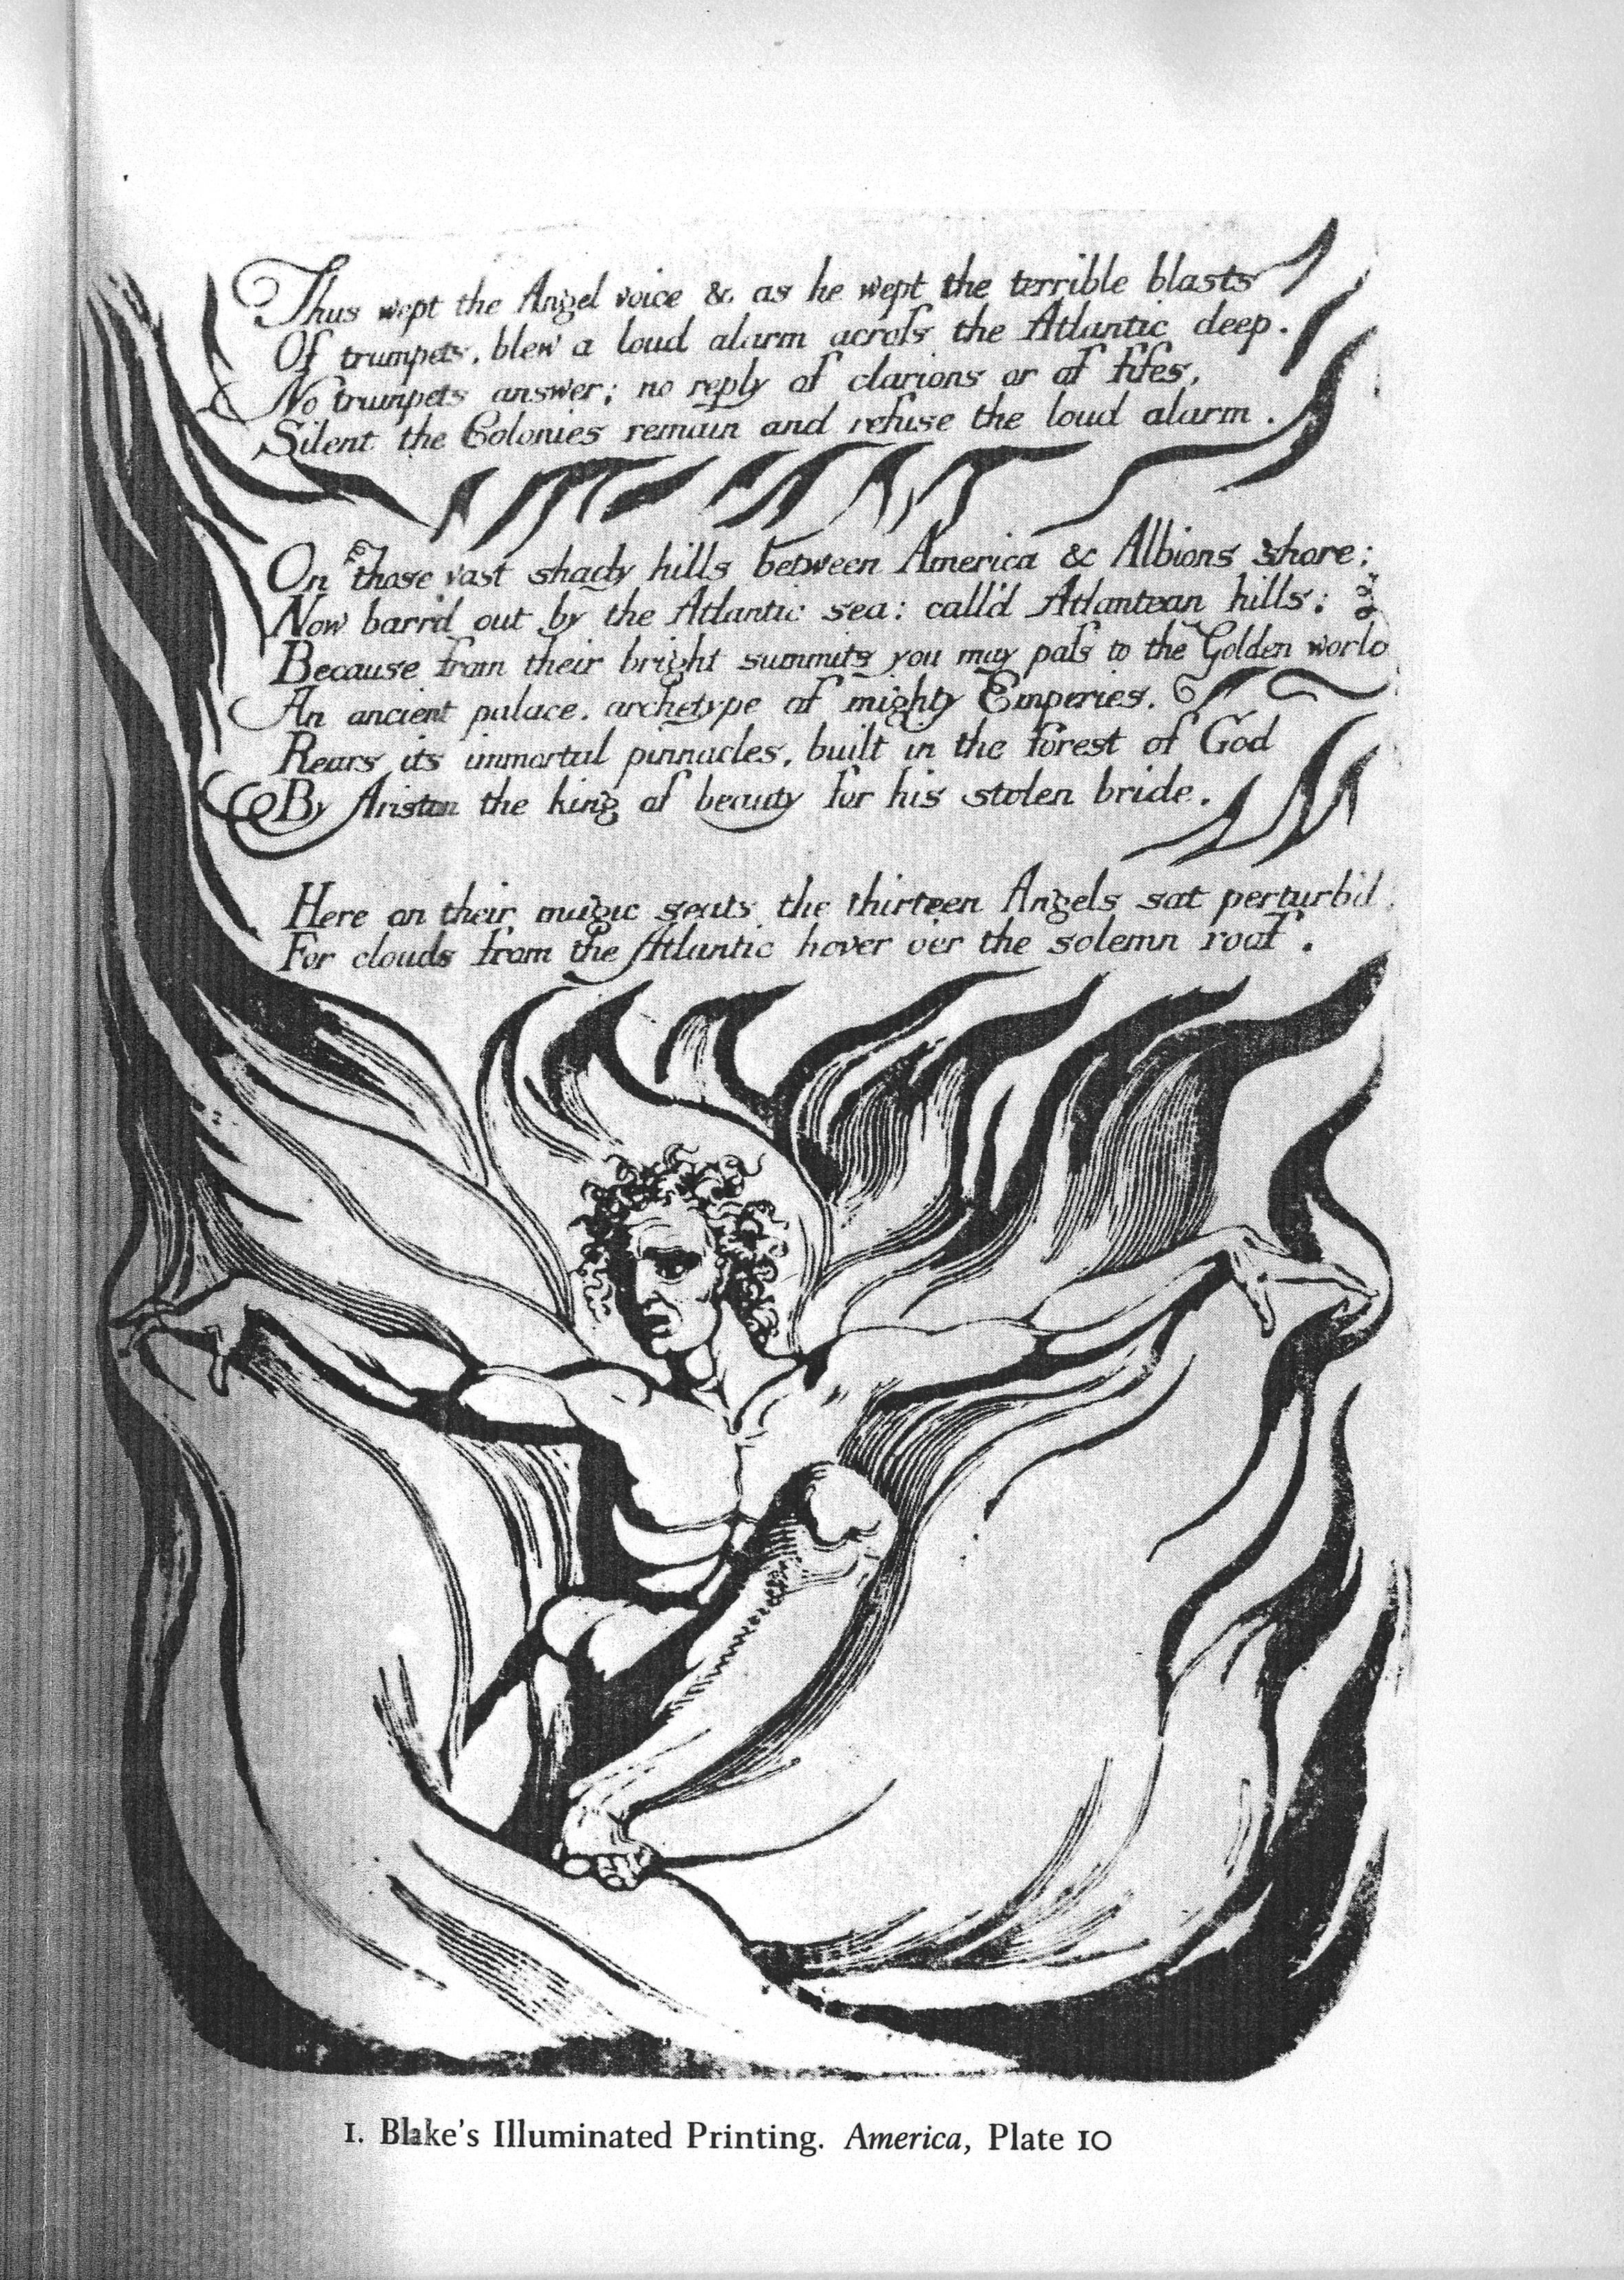 Thus wept the Angel voice & as he wept the terrible blasts
Of trumpets, blew a loud alarm across the Atlantic deep.
No trumpets answer; no reply of clarions or of fifes,
Silent the Colonies remain and refuse the loud alarm.
On those vast shady hills between America & Albions shore;
Now barr'd out by the Atlantic sea: call'd Atlantean hills:
Because from their bright summits you may pass to the Golden world
An ancient palace, archetype of mighty Emperies,
Rears its immortal pinnacles, built in the forest of God
By Ariston the king of beauty for his stolen bride.
Here on their magic seats the thirteen Angels sat perturb'd
For clouds from the Atlantic hover o'er the solemn roof.
1. Blake's Illuminated Printing. America, Plate 10